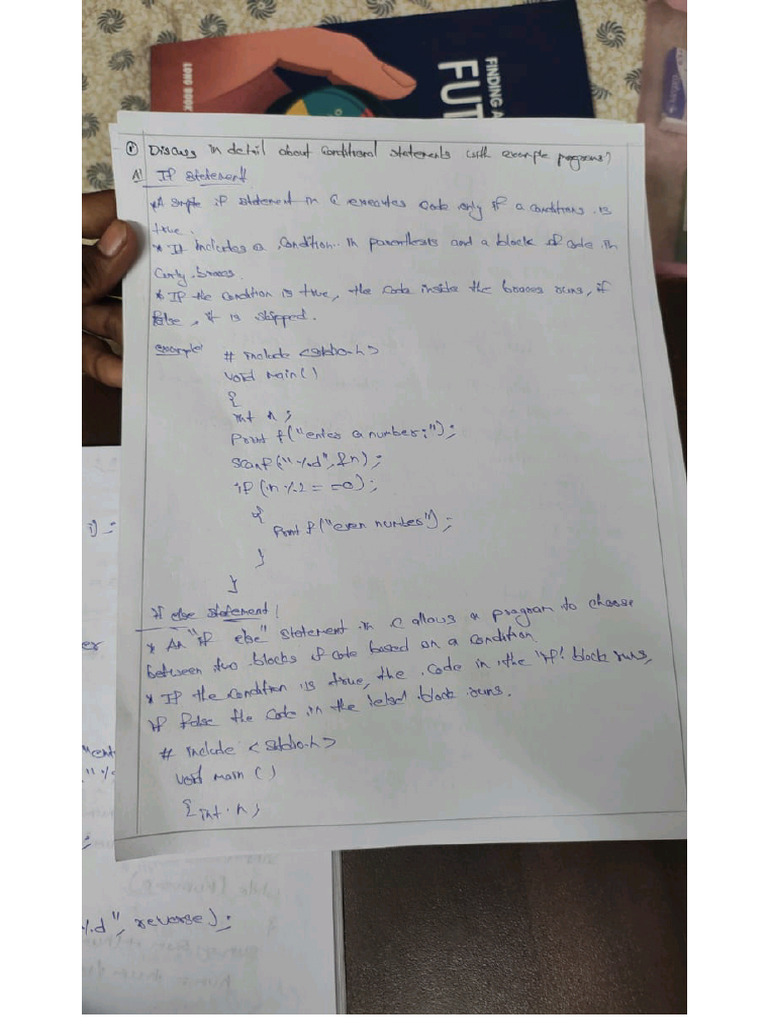 LONG BOOK
FINDING A
FUT
① Discuss in detail about Conditional statements with example programs?
A) If statement
*A simple if statement in C executes code only if a conditions is
true.
* It includes a condition in parenthesis and a block of code in
Curly braces.
* If the condition is true, the code inside the braces runs, if
false, it is skipped.
example:
# include <stdio.h>
void main()
{
int n;
Print f("enter a number:");
scanf("%d", &n);
if (n%2 = =0);
{
Print f("even number");
}
}
If else statement:
* An "if else" statement in C allows a program to choose
between two blocks of code based on a condition.
* If the condition is true, the code in the 'if' block runs,
if false the code in the 'else' block runs.
# include <stdio.h>
void main ()
{ int n;
i);
er
"ent
"%
;
%d", reverse);